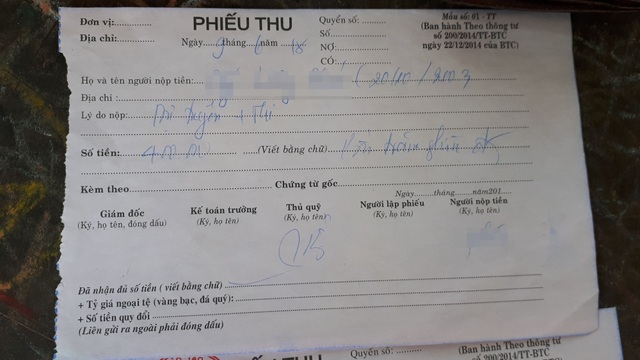 Đơn vị: PHIẾU THU Quyển số: Mẫu số: 01 - TT
Địa chỉ: Ngày 9 tháng 6 năm 18 Số (Ban hành Theo thông tư
NỢ: số 200/2014/TT-BTC
CÓ: ngày 22/12/2014 của BTC)
Họ và tên người nộp tiền: (20/10/2003
Địa chỉ :
Lý do nộp:
Số tiền: (Viết bằng chữ)
Kèm theo Chứng từ gốc
Ngày tháng năm201
Giám đốc Kế toán trưởng Thủ quỹ Người lập phiếu Người nộp tiền
(Ký, họ tên, đóng dấu) (Ký, họ tên) (Ký, họ tên) (Ký, họ tên) (Ký, họ tên)
Đã nhận đủ số tiền ( viết bằng chữ)
+ Tỷ giá ngoại tệ (vàng bạc, đá quý):
+ Số tiền quy đổi
(Liên gửi ra ngoài phải đóng dấu)
Quyển số: (Ban hành Theo thông tư
số 200/2014/TT-BTC